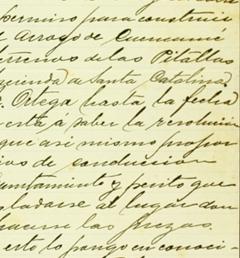 permiso para construir
Arroyo de Cuemamé
terrenos de las Pitallas
hacienda de Santa Catalina
Ortega hasta la fecha
está á saber la resolución
que asi mismo propor
ios de conducción
untamiento y perito que
sladarse al lugar don
hacerse las presas.
esto lo pongo en conoci-